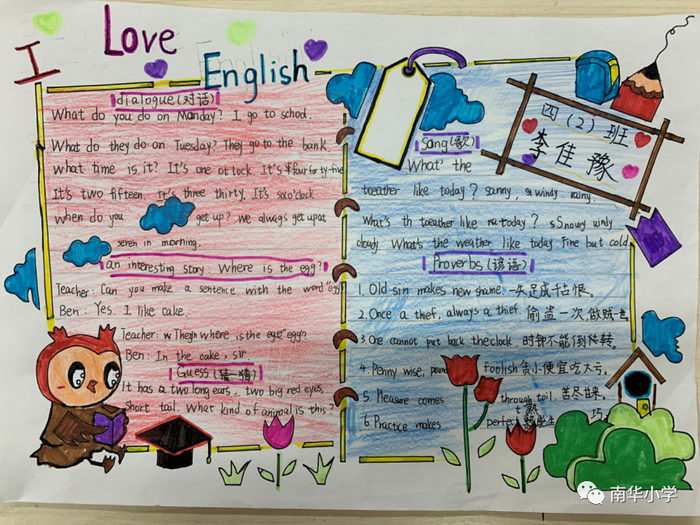 I Love English
dialogue(对话)
What do you do on Monday? I go to school.
What do they do on Tuesday? They go to the bank.
What time is it? It's one o'clock. It's four forty-five
It's two fifteen. It's three thirty. It's six o'clock
When do you get up? We always get up at
seven in morning.
an interesting story. Where is the egg?
Teacher: Can you make a sentence with the word "egg"
Ben: Yes. I like cake.
Teacher: Then where is the egg?
Ben: In the cake, sir.
Guess(猜一猜)
It has a two long ears, two big red eyes,
Short tail. What kind of animal is this?
Sang(歌)
What' the
weather like today? sunny, windy rainy.
What's th weather like today? Snowy windy
cloudy. What's the weather like today Fine but cold
Proverbs(谚语)
1. Old sin makes new shame. 一失足成千古恨。
2. Once a thief, always a thief. 偷盗一次,做贼一世
3. One cannot put back the clock 时钟不能倒转。
4. Penny wise, foolish 贪小便宜吃大亏。
5. Pleasure comes through toil. 苦尽甘来。
6. Practice makes perfect 熟能生巧。
四(2)班
李佳豫
南华小学